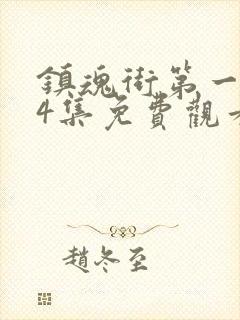 鎮魂街第一
4集免費觀
趙冬至